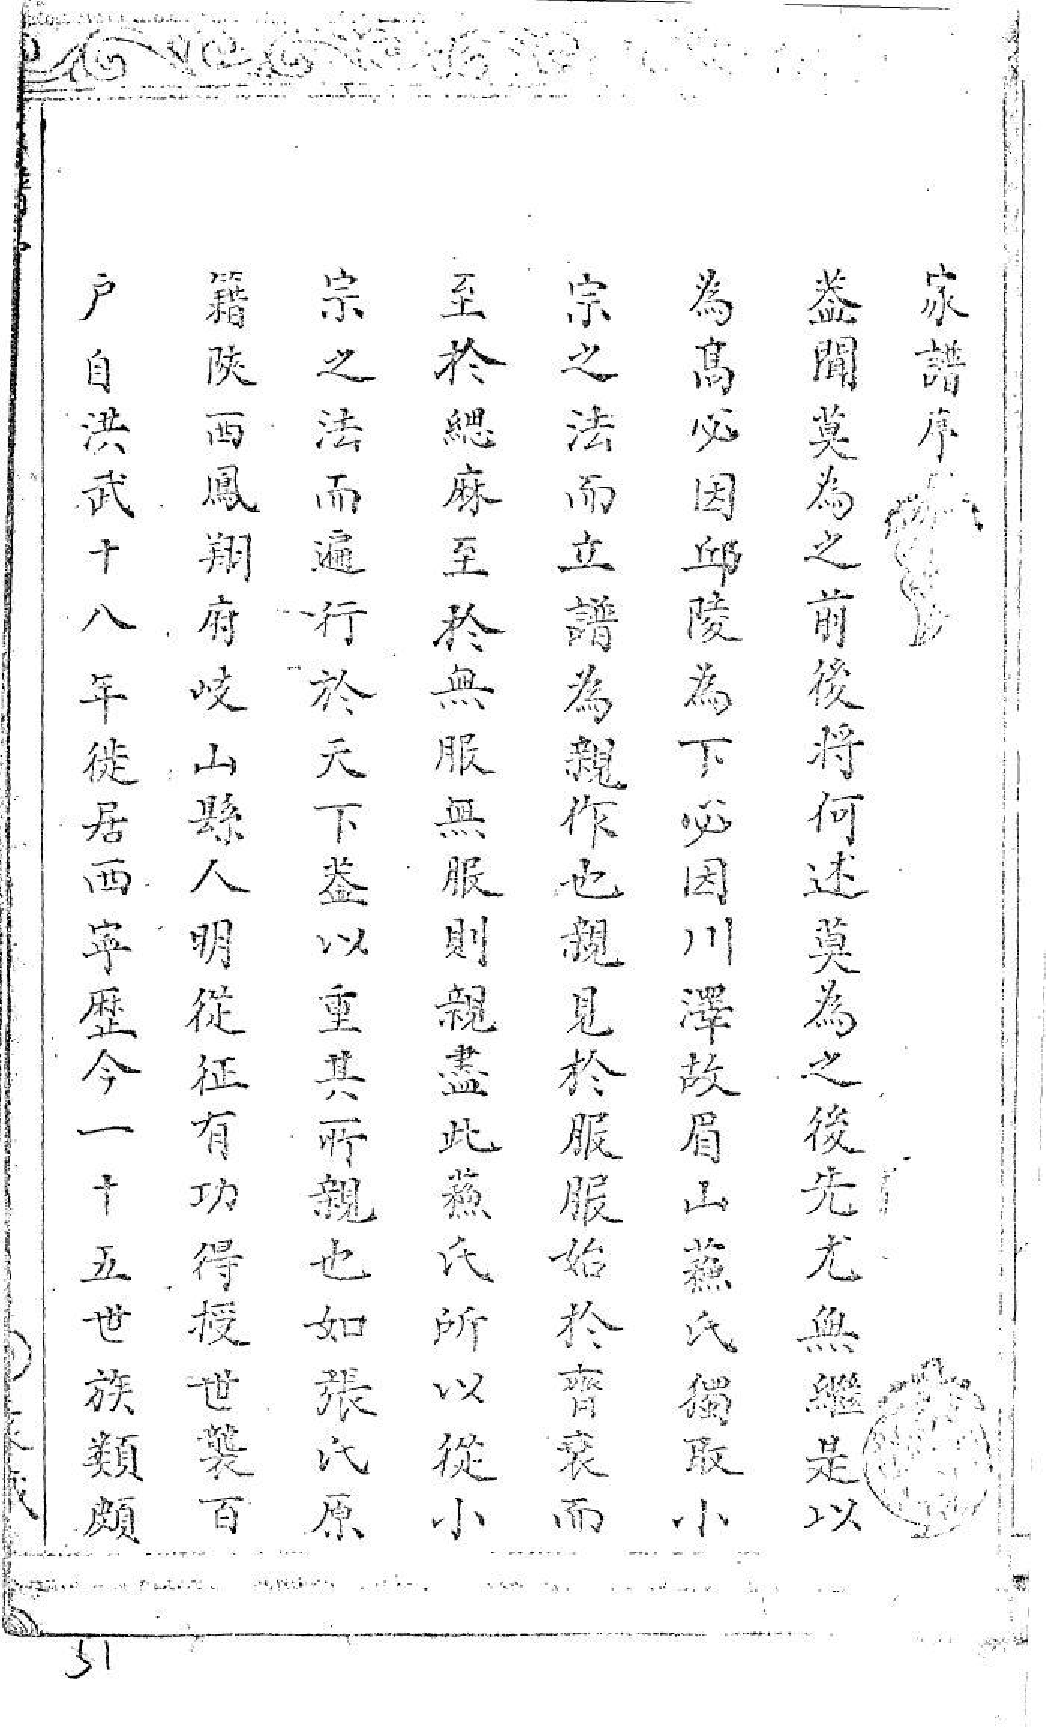 家譜序
蓋聞莫為之前後將何述莫為之後先尤無繼是以
為高必因邱陵為下必因川澤故眉山蘓氏獨取小
宗之法而立譜為親作也親見於服服始於齊衰而
至於緦麻至於無服無服則親盡此蘓氏所以從小
宗之法而遍行於天下蓋以重其所親也如張氏原
籍陝西鳳翔府岐山縣人明從征有功得授世襲百
户自洪武十八年徙居西寧歷今一十五世族類頗
51